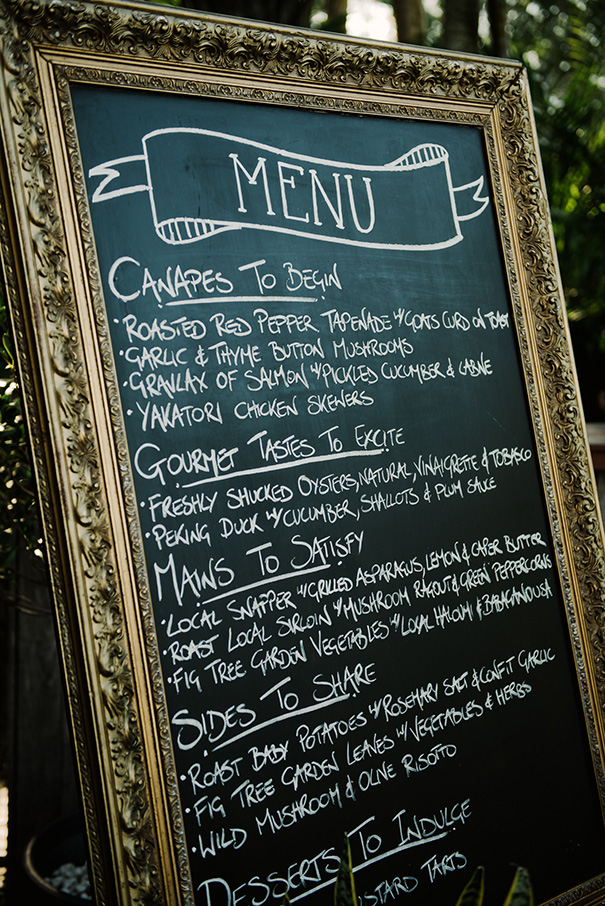 MENU
CANAPES TO BEGIN
• ROASTED RED PEPPER TAPENADE W/ GOATS CURD ON TOAST
• GARLIC & THYME BUTTON MUSHROOMS
• GRAVLAX OF SALMON W/ PICKLED CUCUMBER & LABNE
• YAKATORI CHICKEN SKEWERS
GOURMET TASTES TO EXCITE
• FRESHLY SHUCKED OYSTERS, NATURAL, VINAIGRETTE & TOBASCO
• PEKING DUCK W/ CUCUMBER, SHALLOTS & PLUM SAUCE
MAINS TO SATISFY
• LOCAL SNAPPER W/ GRILLED ASPARAGUS, LEMON & CAPER BUTTER
• ROAST LOCAL SIRLOIN W/ MUSHROOM RAGOUT & GREEN PEPPERCORNS
• FIG TREE GARDEN VEGETABLES W/ LOCAL HALOUMI & BABAGANOUSA
SIDES TO SHARE
• ROAST BABY POTATOES W/ ROSEMARY SALT & CONFIT GARLIC
• FIG TREE GARDEN LEAVES W/ VEGETABLES & HERBS
• WILD MUSHROOM & OLIVE RISOTTO
DESSERTS TO INDULGE
TARTS